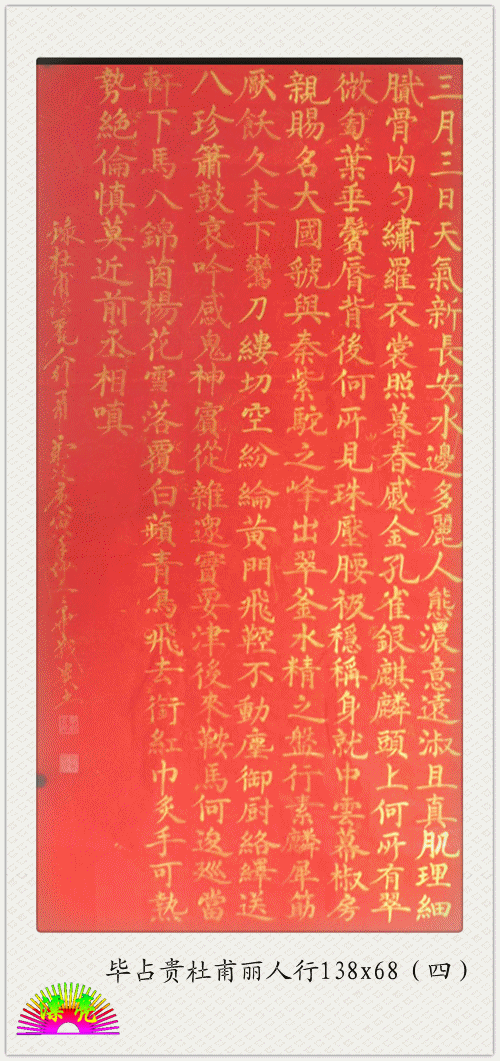 三月三日天氣新長安水邊多麗人態濃意遠淑且真肌理細
膩骨肉勻繡羅衣裳照暮春蹙金孔雀銀麒麟頭上何所有翠
微匎葉垂鬢脣背後何所見珠壓腰衱穩稱身就中雲幕椒房
親賜名大國虢與秦紫駝之峰出翠釜水精之盤行素鱗犀筯
厭飫久未下鸞刀縷切空紛綸黃門飛鞚不動塵御厨絡繹送
八珍簫鼓哀吟感鬼神賓從雜遝實要津後來鞍馬何逡巡當
軒下馬入錦茵楊花雪落覆白蘋青鳥飛去銜紅巾炙手可熱
勢絕倫慎莫近前丞相嗔
錄杜甫詩麗人行
毕占贵杜甫丽人行138x68（四）